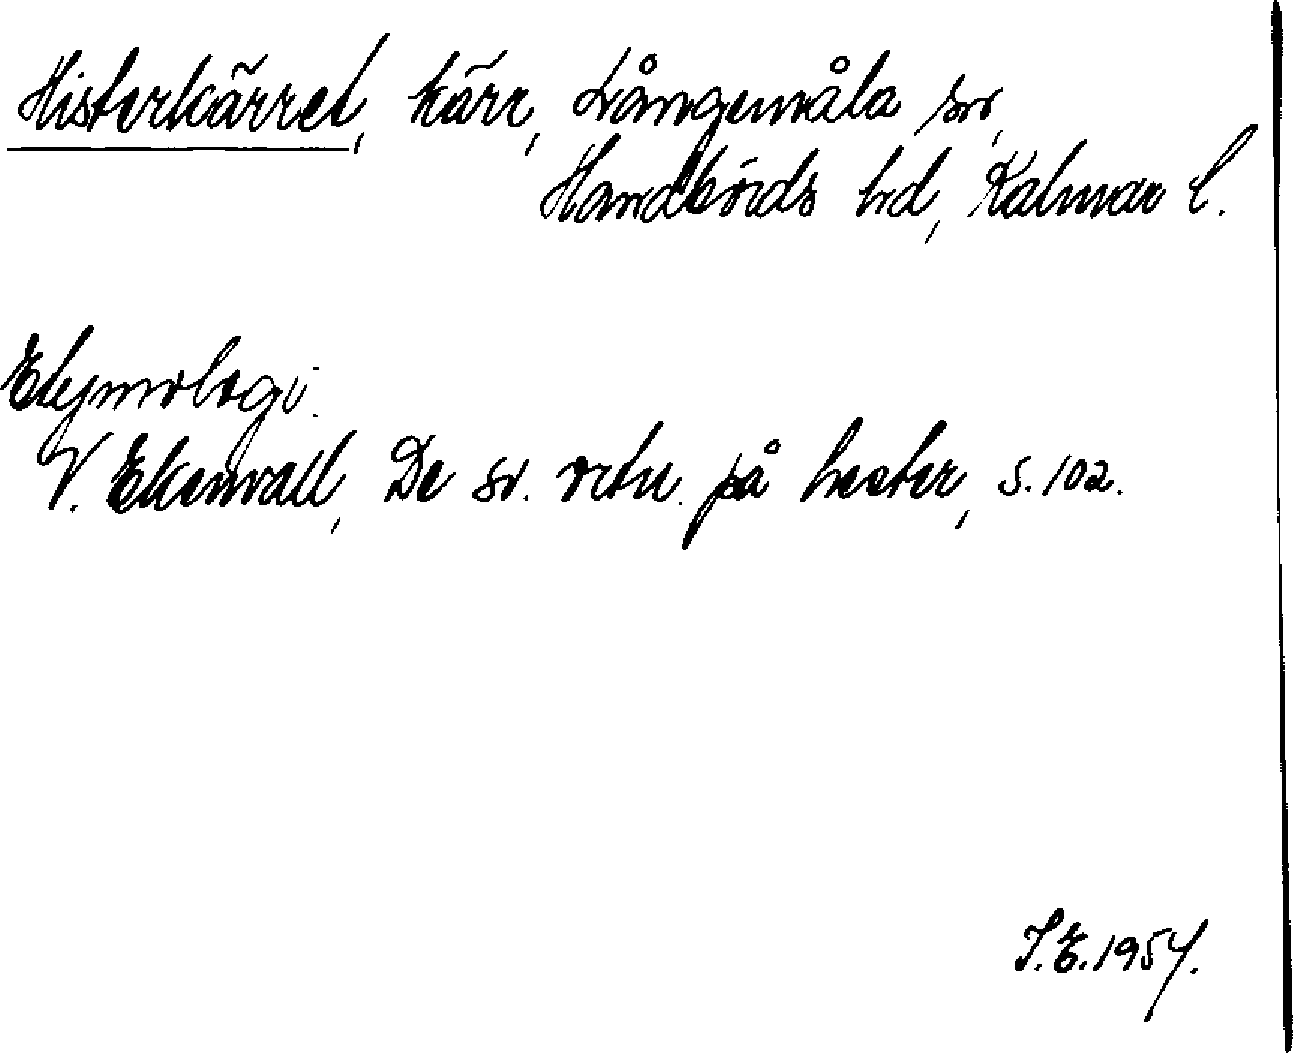 Histerkärret, kärr, Långemåla sn,
Handbörds hd, Kalmar l.
Etymologi.
V. Ekenvall, De sv. ortn. på hester, s. 102.
I.E. 1954.